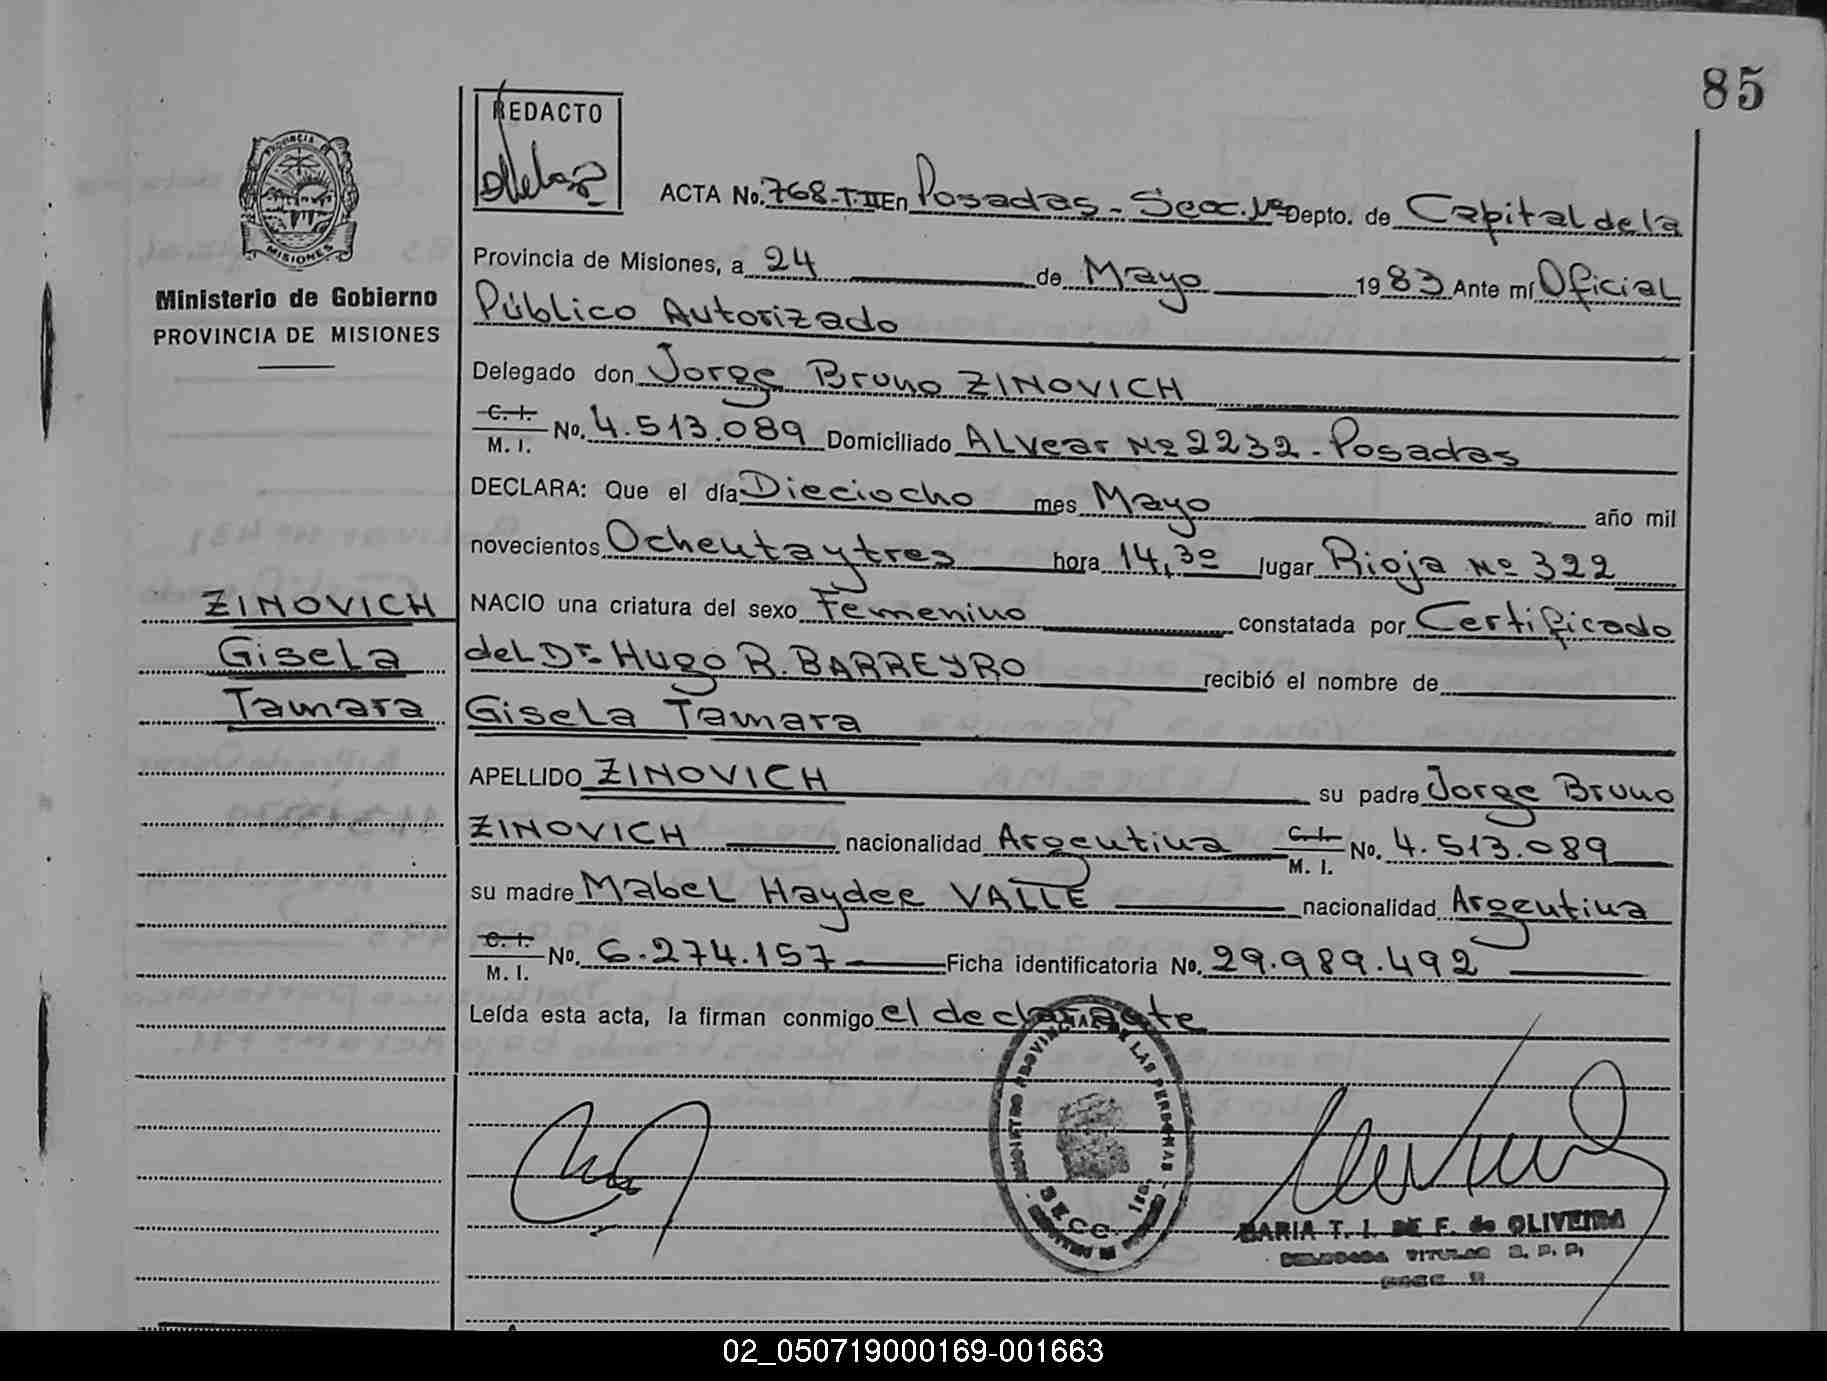 85
REDACTO
Provincia de
MISIONES
Ministerio de Gobierno
PROVINCIA DE MISIONES
ACTA No. 768-T.II En Posadas - Secc. 1ª Depto. de Capital de la
Provincia de Misiones, a 24 de Mayo 1983 Ante mí Oficial
Público Autorizado
Delegado don Jorge Bruno ZINOVICH
C. I.
M. I. No. 4.513.089 Domiciliado ALvear Nº 2232 - Posadas
DECLARA: Que el día Dieciocho mes Mayo año mil
novecientos Ochenta y tres hora 14,30 lugar Rioja Nº 322
ZINOVICH
Gisela
Tamara
NACIO una criatura del sexo Femenino constatada por Certificado
del Dr. Hugo R. BARREYRO recibió el nombre de
Gisela Tamara
APELLIDO ZINOVICH su padre Jorge Bruno
ZINOVICH nacionalidad Argentina C. I. M. I. No. 4.513.089
su madre Mabel Haydee VALLE nacionalidad Argentina
C. I.
M. I. No. 6.274.157 Ficha identificatoria No. 29.989.492
Leída esta acta, la firman conmigo el declarante
REGISTRO PROVINCIAL DE LAS PERSONAS
SECC. 1ra.
MARIA T. I. DE F. de OLIVEIRA
DELEGADA TITULAR R. P. P.
02_050719000169-001663